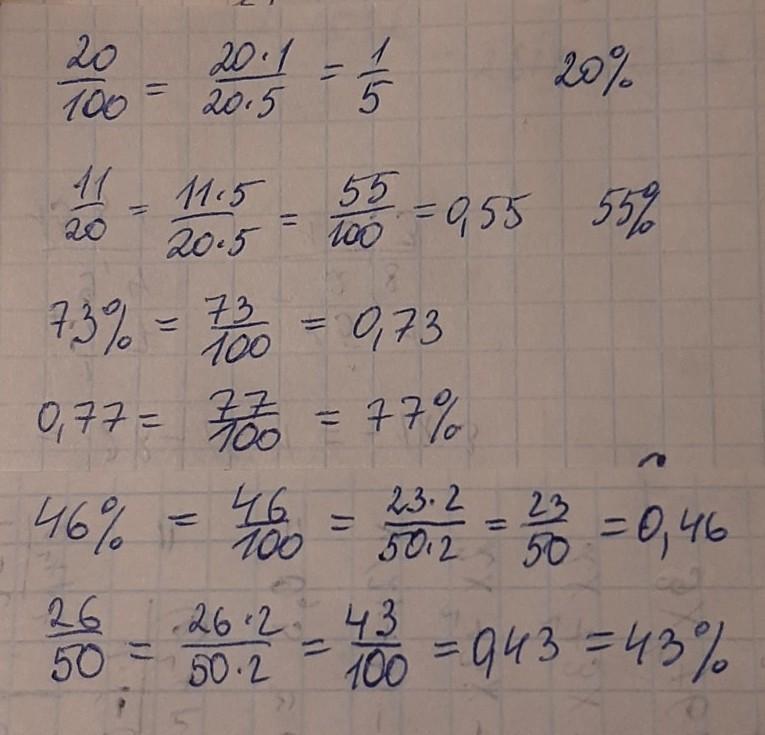 20/100 = 20·1/20·5 = 1/5 20%
11/20 = 11·5/20·5 = 55/100 = 0,55 55%
73% = 73/100 = 0,73
0,77 = 77/100 = 77%
46% = 46/100 = 23·2/50·2 = 23/50 = 0,46
26/50 = 26·2/50·2 = 43/100 = 0,43 = 43%